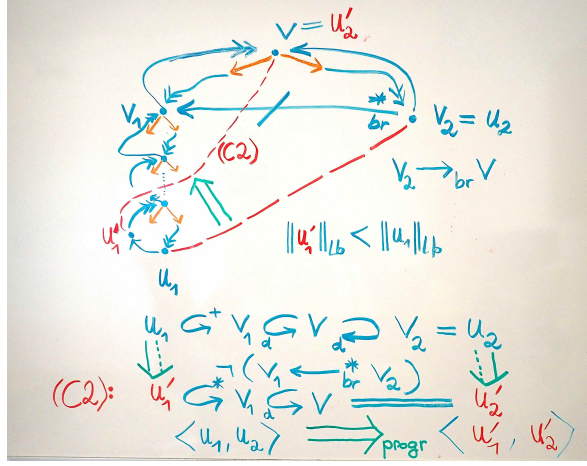 V = u₂′
V₁
*
br
V₂ = u₂
(C2)
V₂ →br V
u₁′
‖u₁′‖Lb < ‖u₁‖Lb
u₁
u₁ ↶⁺ V₁ d↶ V d↷ V₂ = u₂
¬(V₁ ←*br V₂)
(C2): u₁′ ↶* V₁ d↶ V = u₂′
⟨u₁, u₂⟩ ⇒progr ⟨u₁′, u₂′⟩